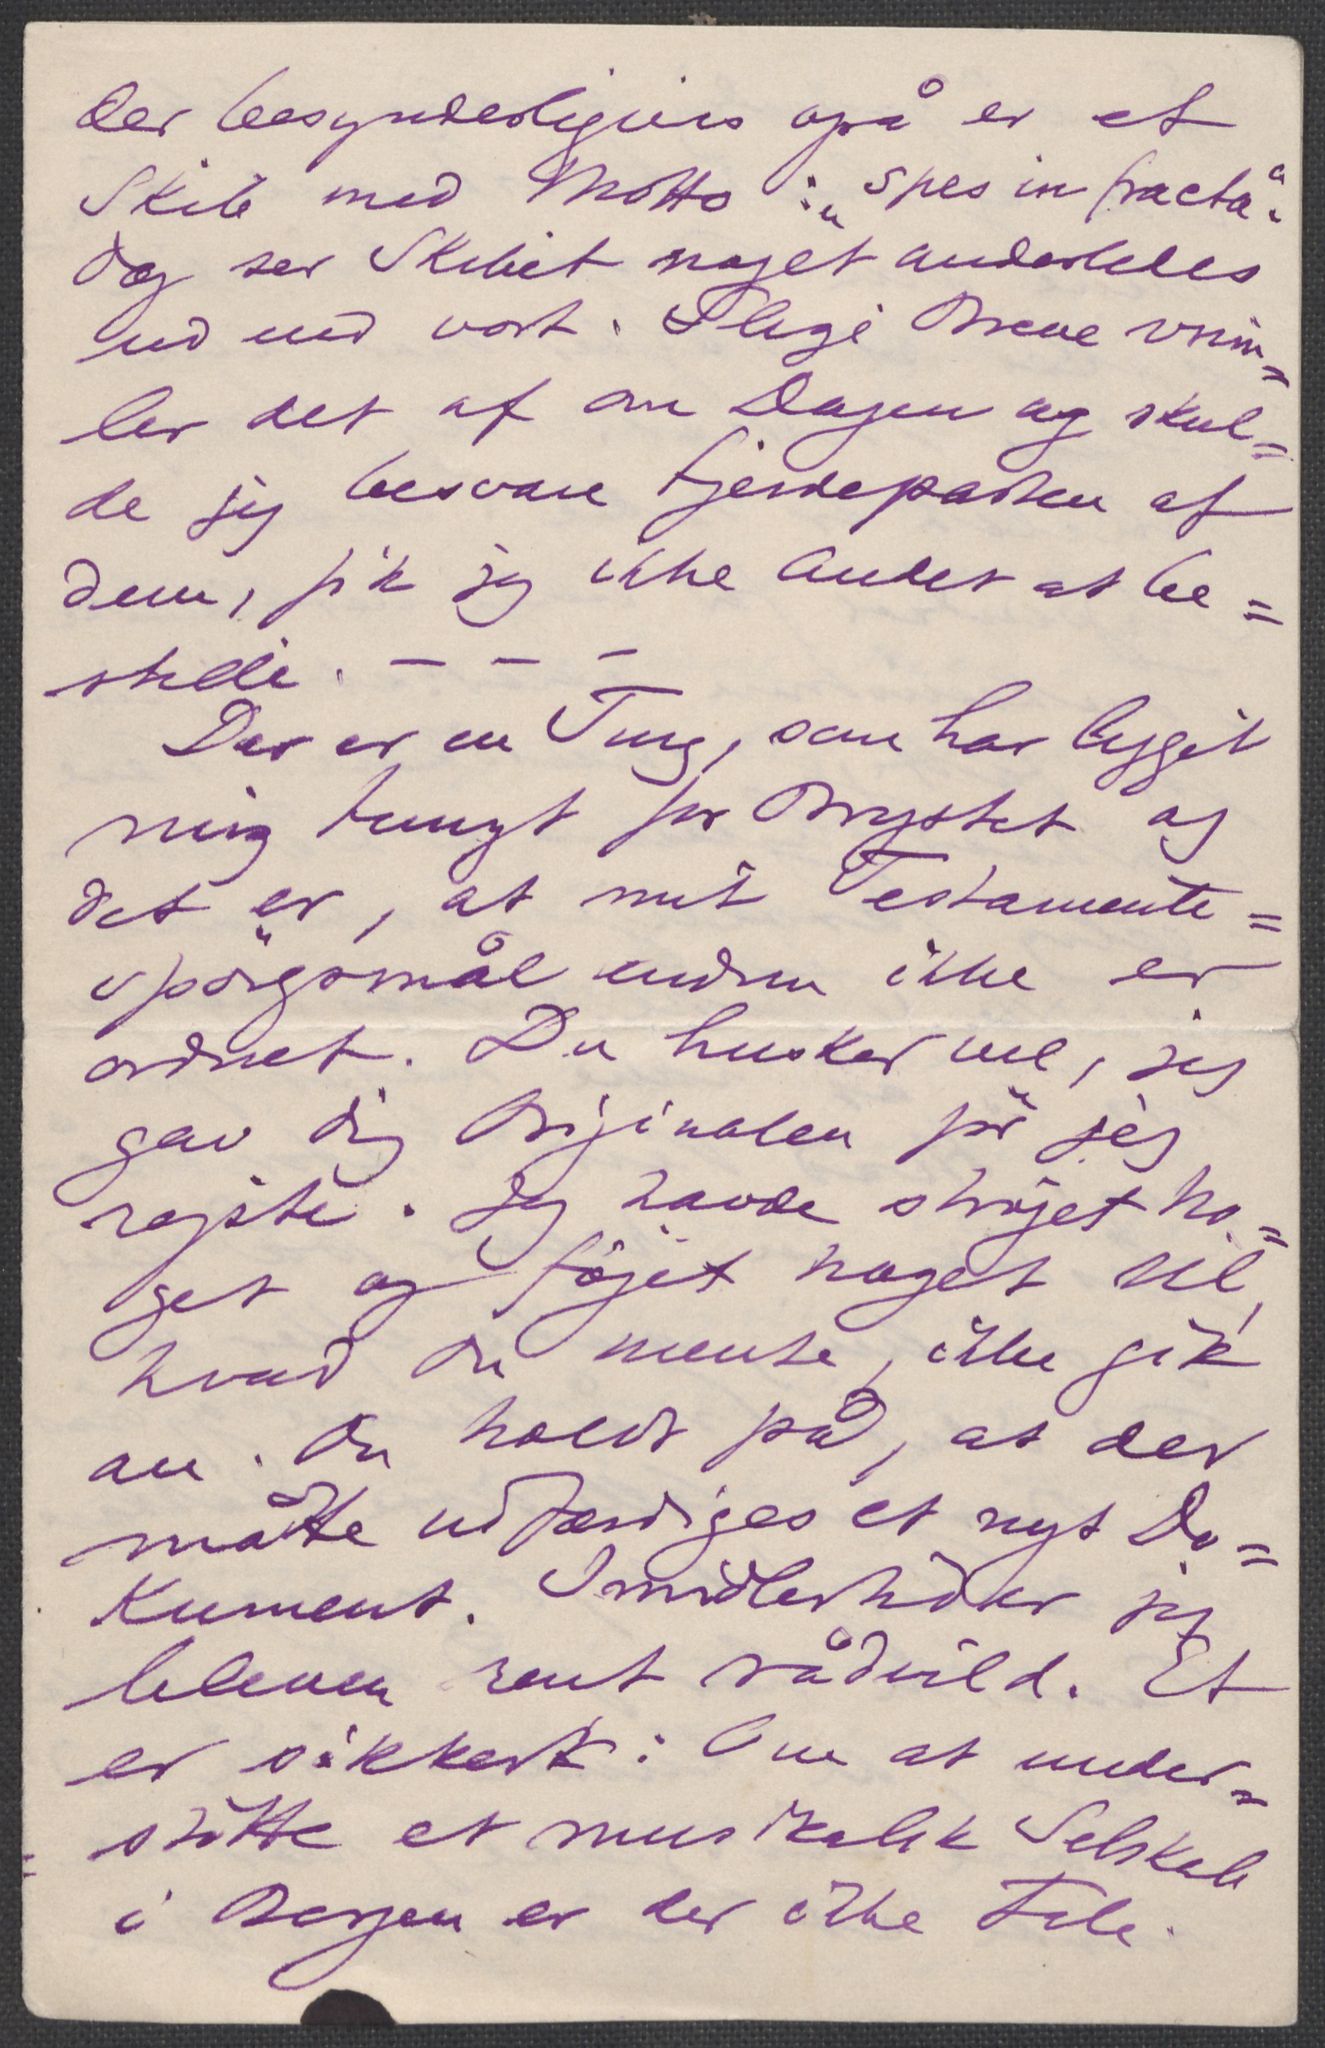 der besynderligvis også er et
Skib med Motto: „spes in fracta“.
Dog ser Skibet noget anderledes
ud end vort. Slige Breve vrim=
ler det af om Dagen og skul=
de jeg besvare Fjerdeparten af
dem, fik jeg ikke Andet at be=
stille. — — —
Der er en Ting, som har ligget
mig tungt for Brystet og
det er, at mit Testamente=
spörgsmål endnu ikke er
ordnet. Du husker vel, jeg
gav dig Originalen för jeg
rejste. Jeg havde ströjet no=
get og föjet noget til,
hvad Du mente, ikke gik
an. Du holdt på, at der
måtte udfærdiges et nyt Do=
kument. Imidlertid er jeg
bleven rent rådvild. Et
er sikkert: Om at under=
stötte et musikalsk Selskab
i Bergen er der ikke Tale.